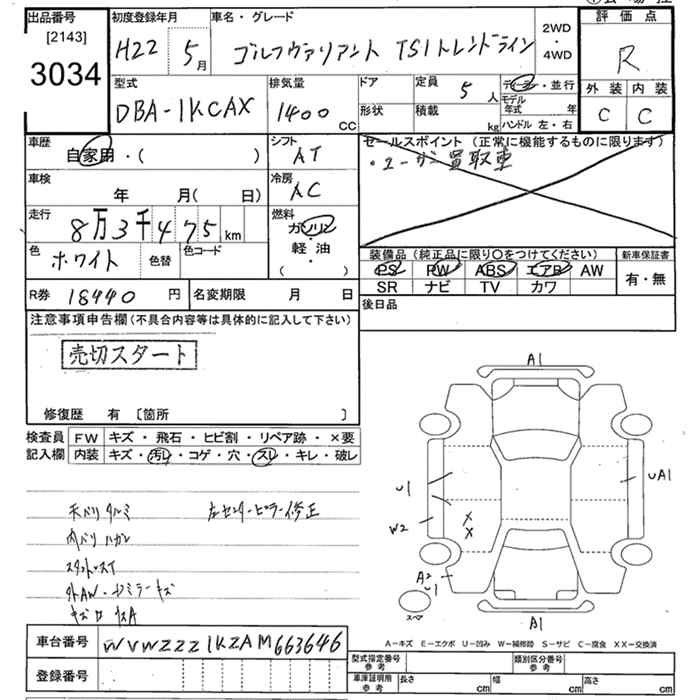 出品番号
[2143]
3034
初度登録年月
H22 5月
車名・グレード
ゴルフヴァリアント TSIトレンドライン
2WD
・
4WD
評価点
R
外装 内装
C C
型式
DBA-1KCAX
排気量
1400 cc
ドア
形状
定員 5人
積載 kg
ディーラー・並行
モデル年式 年
ハンドル 左・右
車歴
自家用・( )
シフト
AT
セールスポイント (正常に機能するものに限ります)
・ユーザー買取車
車検
年 月( 日)
冷房
AC
走行
8万3千475km
燃料
ガソリン
軽油
( )
色
ホワイト 色替
色コード
装備品 (純正品に限り○をつけてください)
PS PW ABS エアB AW
SR ナビ TV カワ
新車保証書
有・無
R券 18440円
名変期限 月 日
後日品
注意事項申告欄 (不具合内容等は具体的に記入して下さい)
売切スタート
修復歴 有 〔箇所 〕
検査員
記入欄
FW キズ・飛石・ヒビ割・リペア跡・×要
内装 キズ・汚れ・コゲ・穴・スレ・キレ・破レ
天バリタルミ 左センターピラー修正
内バリハガレ
外AW・ドアミラーキズ
A1
U1
W2
UA1
A2
U1
スペア
A1
A-キズ E-エクボ U-凹み W-補修跡 S-サビ C-腐食 XX-交換済
車台番号 WVWZZZ1KZAM663646
登録番号
型式指定番号
参考
類別区分番号
参考
車庫証明用
参考
長さ cm 幅 cm 高さ cm